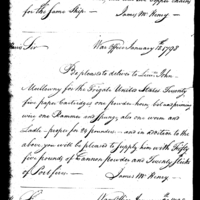 for the same Ship.—
James McHenry
Sir War Office January 12. 1798
Be pleased to deliver to Lieut John
Mullowny for the Frigate United States Twenty
five paper Cartridges one powder horn,
one Rammer and Spunge, also one worm and
Ladle - proper for 24 pounders — and in addition to the
above you will be pleased to supply him with Fifty
five pounds of Cannon powder and Twenty Sticks
of Portfire.—
James McHenry